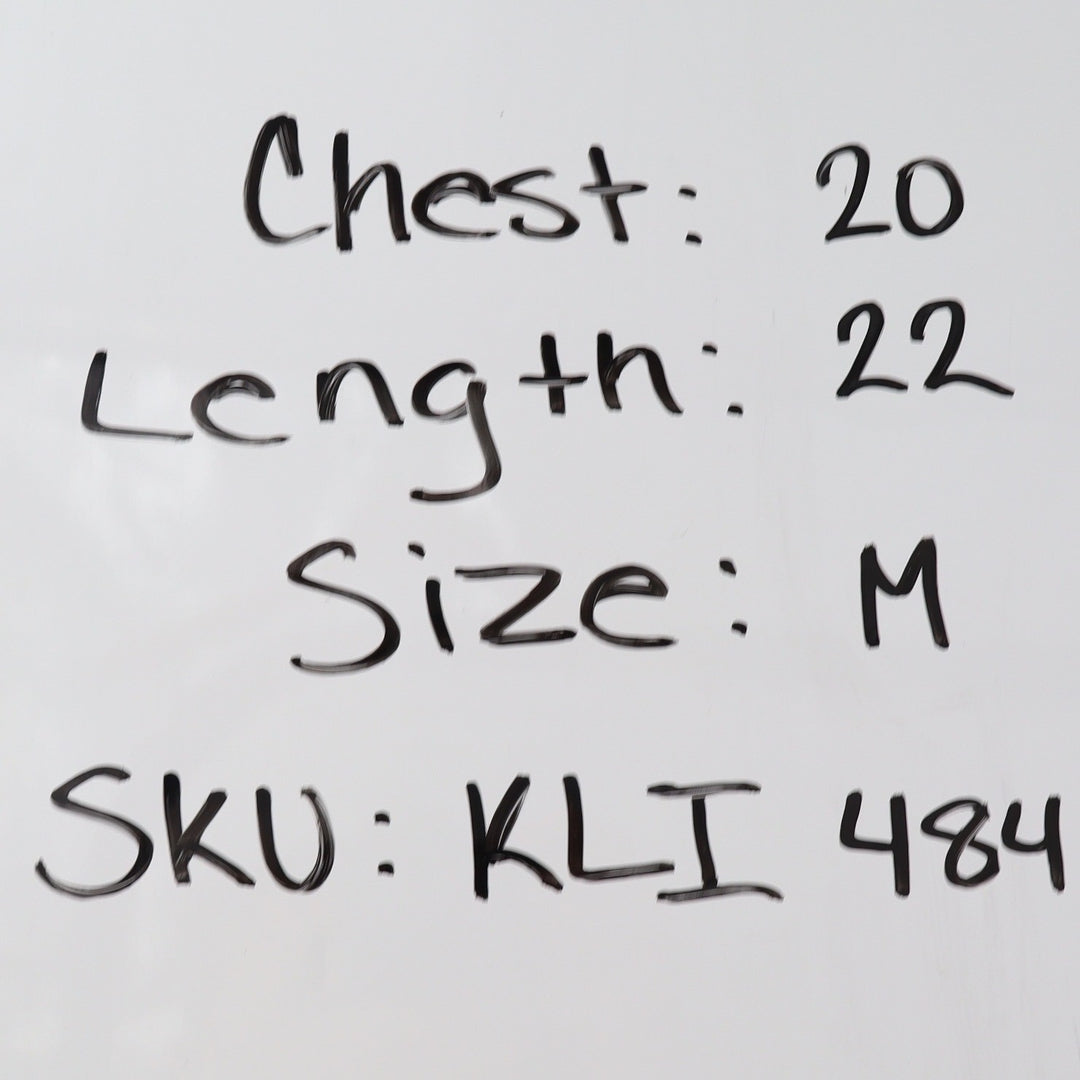 Chest: 20
Length: 22
Size: M
SKU: KLI 484